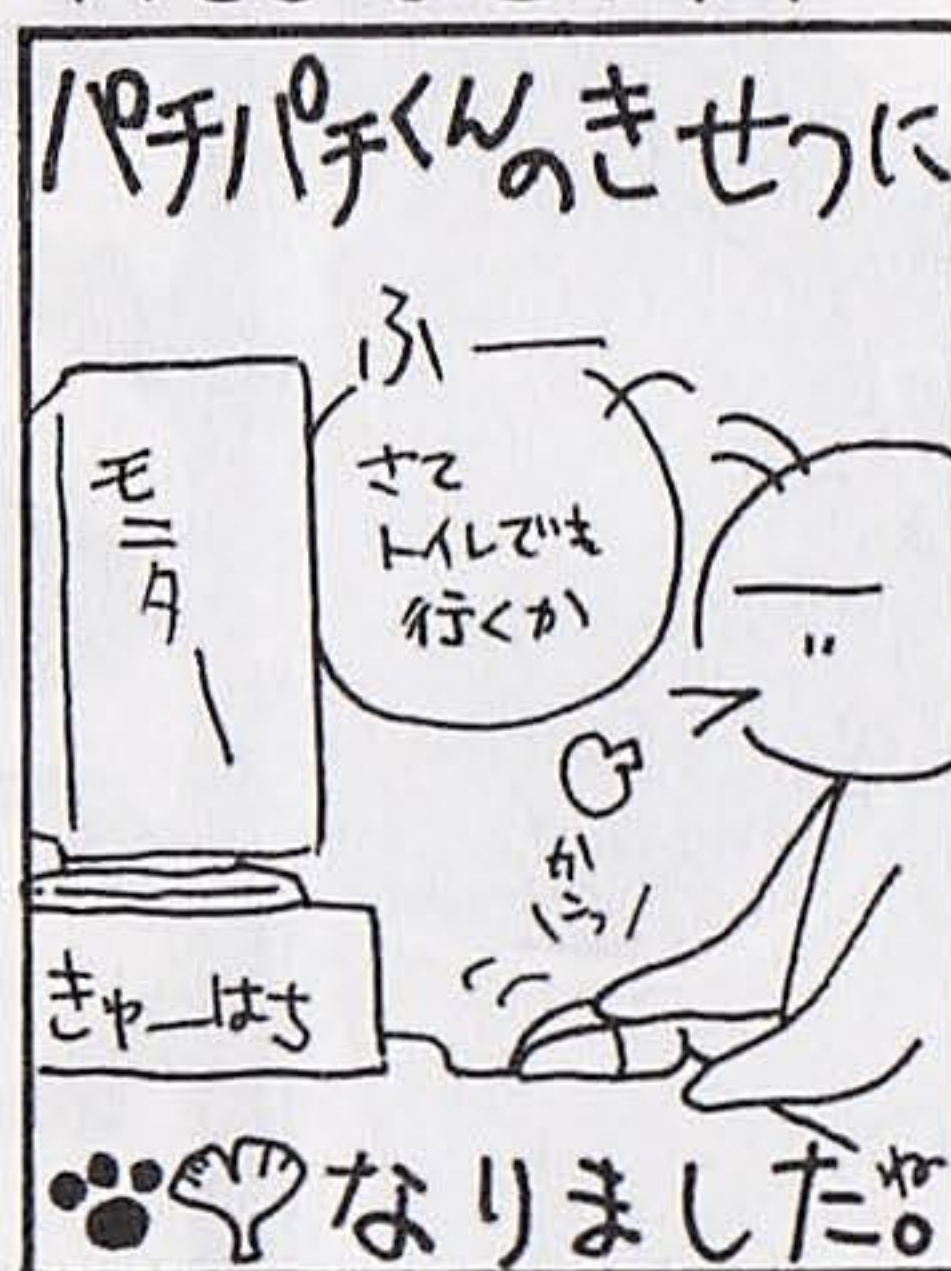 パチパチくんのきせつに
ふー
さて
トイレでも
行くか
モニター
かこっ
きゅーはち
なりました。ね